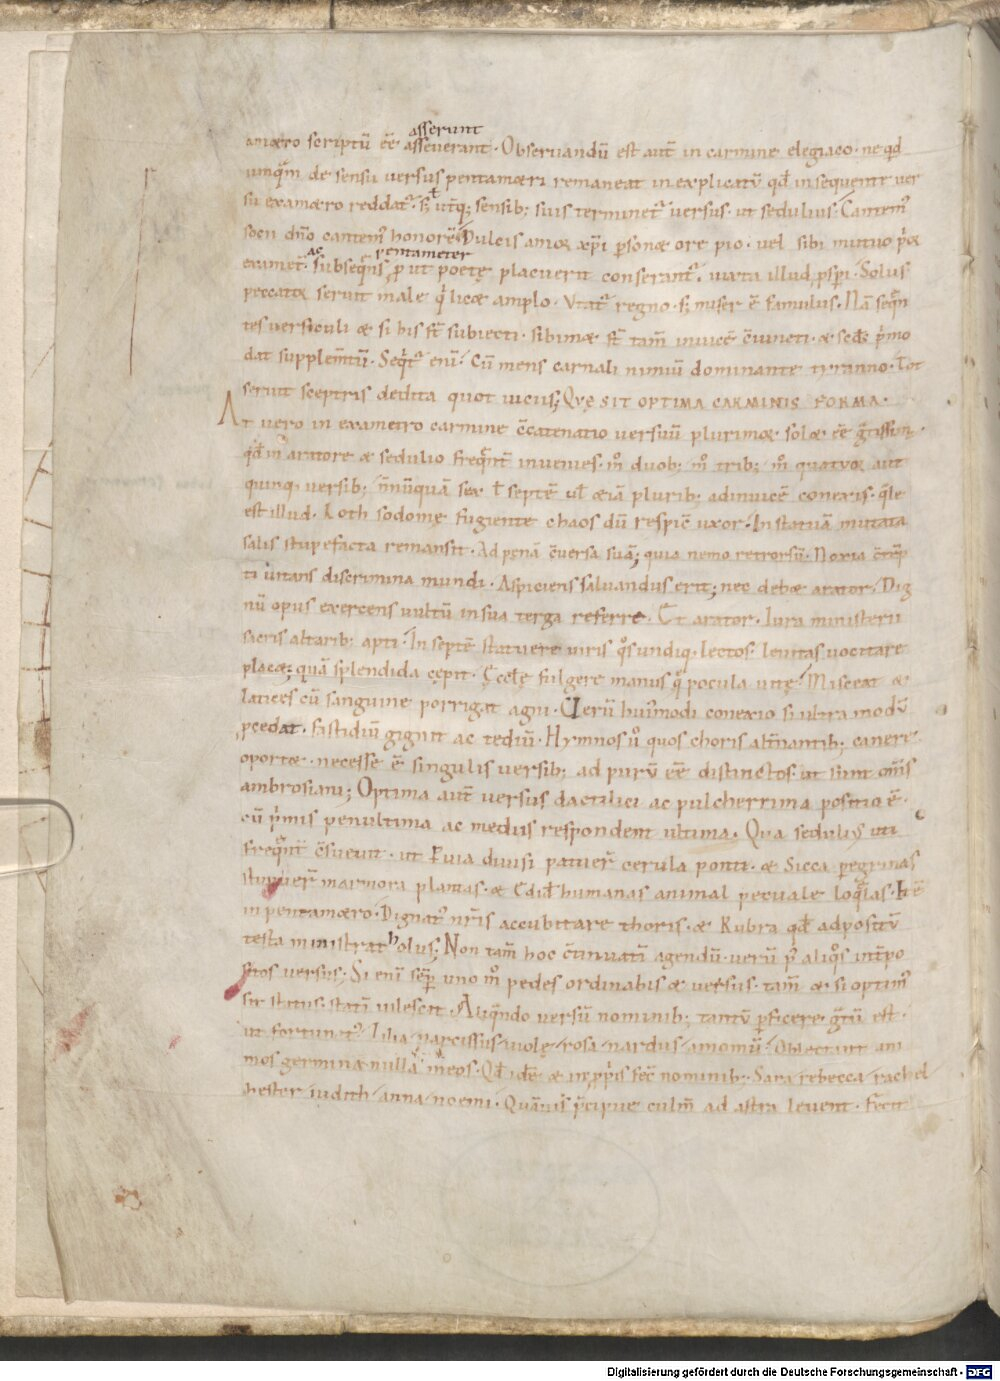 asserunt
amœro scriptū eē asseverant. Observandū est aut̄ in carmine elegiaco. ne qd
umq̄m de sensu versus pentamœri remaneat inexplicatū qd̄ in sequente ver
su examœro reddat᷑. s; utq; sensib; suis terminet᷑ versus. ut sedulius. Cantem᷒
socii dn̄o cantem᷒ honorē. Dulcis amor xp̄i psonæ ore pio. vel sibi mutuo
ac pentameter
examet᷑. subseq̄ns p ut poetę placuerit conserant᷑. iuxta illud psp̄i. Solus
peccator servit male q̇ licæ amplo. Utat᷑ regno. s; miser ē famulus. Nā seq̄n
tes versiculi æ si his st̄ subiecti. sibimæ st̄ tam̄ invicē c̄iuncti. æ scd̄s ṗmo
dat supplem̄tū. Seq̇t᷑ enī. Cū mens carnali nimiū dominante tyranno. Tot
servit sceptris dedita quot viciis; QVĘ SIT OPTIMA CARMINIS FORMA.
At vero in exametro carmine c̄catenatio versuū plurimæ. solæ eē
qd̄ in aratore æ sedulio freq̄nt̄ invenies. m̊ duob; m̊ trib; m̊ quatuor aut
quinq; versib; n̄nūquā sex ł septē ul̄ æiā plurib; adinvicē conexis. q̄le
est illud. Loth sodomę fugiente chaos dū respic̄ uxor. In statuā mutata
salis stupefacta remansit. Ad penā c̄versa suā; quia nemo retrorsū. Noxia c̄tēp
ti vitans discrimina mundi. Aspiciens salvandus erit; nec debæ arator. Dig
nū opus exercens vultū in sua terga referre. Et arator. Iura ministerii
sacris altarib; apti. In septē statuere viris q̊s undiq. lectos. levitas vocitare
placæ; quā splendida cępit. Ęcclę fulgere manus q̄ pocula vitę. Misceat æ
latices cū sanguine porrigat agni. Uerū huīmodi conexio si ultra modū
pcedat. fastidiū gignit ac tediū. Hymnos ů quos choris alt̄nantib; canere
oportæ. necesse ē singulis versib; ad purū eē distinctos. ut sunt om̄s
ambrosiani; Optima aut̄ versus dactilici ac pulcherrima positio ē.
cū ṗmis penultima ac mediis respondent ultima. Qua sedulị uti
freq̄nt̄ c̄suevit. ut Pervia divisi patuer̄ cerula ponti. æ Sicca pegrinas
stupuer̄ marmora plantas. æ Edid̄ humanas animal pecuale loq̄las. Itē
in pentamœro. Dignat᷑ nr̄is accubitare thoris. æ Rubra qd̄ adpositū
testa ministrat holus; Non tam̄ hoc c̄tinuatī agendū. verū p aliq̊s int̄po
sitos versus; Si enī semp uno m̊ pedes ordinabis æ versus. tam̄ æ si optim᷒
sit status. statī vilescit. Aliq̄ndo versū nominib; tantū pficere. gtū est.
ut fortunat᷒. Lilia narcissus viole rosa nardus amomū. Oblectant ani
mos germina nulla meos. Qd̄ idē æ in p̄p̄is fec̄ nominib; Sara rebecca rachel
hester iudith anna noemi. Quāvis p̄cipue culm̄ ad astra levent. Fecit